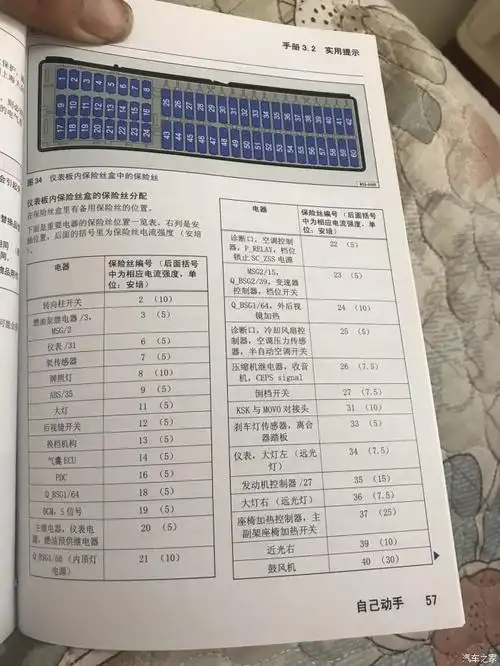 手册3.2 实用提示
1 2 3 4 5 6 7 8
9 10 11 12 13 14 15 16
17 18 19 20 21 22 23 24
25 26 27 28 29 30 31 32 33 34 35 36 37 38 39 40 41 42
43 44 45 46 47 48 49 50 51 52 53 54 55 56 57 58 59 60
图 34 仪表板内保险丝盒中的保险丝
仪表板内保险丝盒的保险丝分配
在保险丝盒里有备用保险丝的位置。
下面是重要电器的保险丝位置一览表。右列是安
装位置，后面的括号里为保险丝电流强度（安培
）。
电器
保险丝编号（后面括号
中为相应电流强度，单
位：安培）
转向柱开关 2 (10)
燃油泵继电器/3，
MSG/2
3 (5)
仪表/31 6 (5)
氧传感器 7 (5)
牌照灯 8 (10)
ABS/35 9 (5)
大灯 11 (5)
后视镜开关 12 (5)
换档机构 13 (5)
气囊ECU 14 (5)
PDC 16 (5)
Q_BSG1/64 18 (5)
BCM，S信号 19 (5)
主继电器，仪表电
源，燃油预供继电器
20 (5)
Q_BSG1/66（内顶灯
电源）
21 (10)
电器
保险丝编号（后面括号
中为相应电流强度，单
位：安培）
诊断口，空调控制
器，P_RELAY，档位
锁止SC_ZSS电源
22 (5)
MSG2/15，
Q_BSG2/39，变速器
控制器，档位开关
23 (5)
Q_BSG1/64，外后视
镜加热
24 (10)
诊断口，冷却风扇控
制器，空调压力传感
器，半自动空调开关
25 (5)
压缩机继电器，收音
机，CEPS signal
26 (7.5)
倒档开关 27 (7.5)
KSK与MOVO对接头 31 (10)
刹车灯传感器，离合
器踏板
33 (5)
仪表，大灯左（远光
灯）
34 (7.5)
发动机控制器/27 35 (15)
大灯右（远光灯） 36 (7.5)
座椅加热控制器，主
副驾座椅加热开关
37 (25)
近光右 39 (10)
鼓风机 40 (30)
自己动手 57
汽车之家